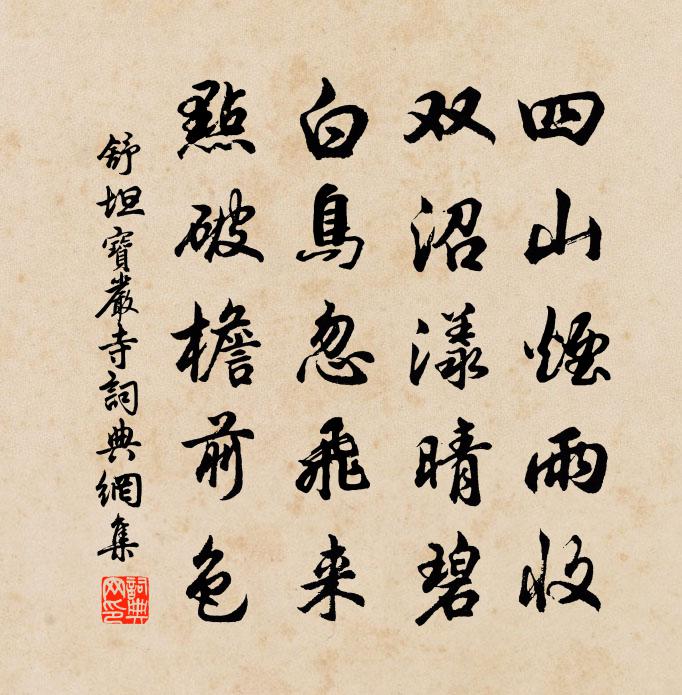 四山煙雨收
双沼漾晴碧
白鳥忽飛来
點破檐前色
舒坦寶嚴寺詞典網集
詞典网印